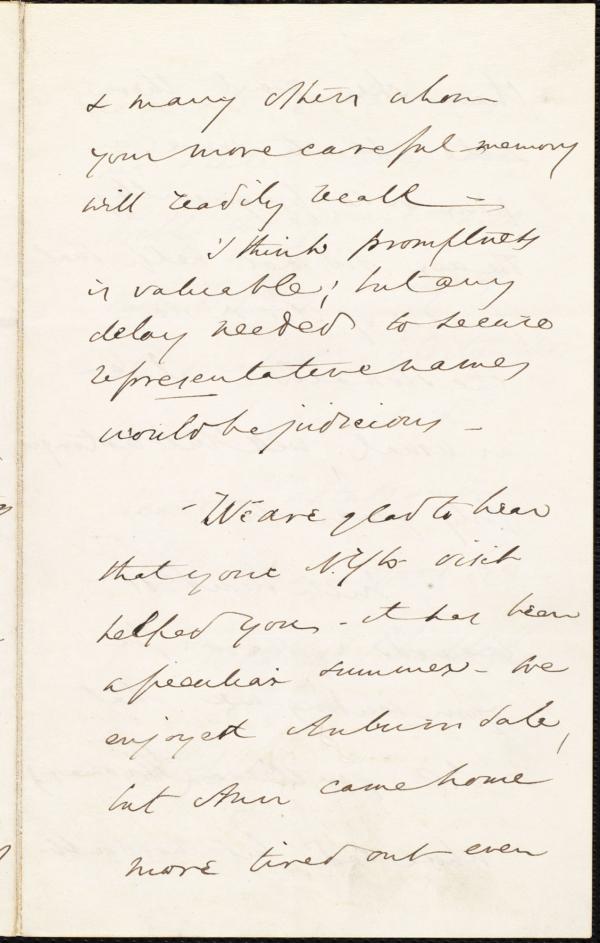 & many others whom
your more careful memory
will readily recall –
I think promptness
is valuable; but any
delay needed to secure
representative names
would be judicious –
- We are glad to hear
that your N.Y. visit
helped you - it has been
a peculiar summer - we
enjoyed Auburndale,
but Ann came home
more tired out even